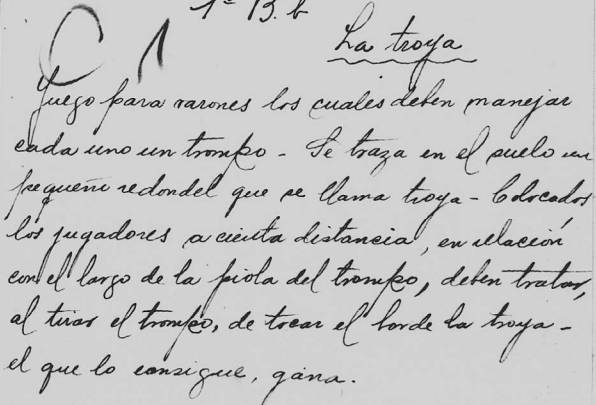 1ª B. b
La troya
Juego para varones los cuales deben manejar
cada uno un trompo - Se traza en el suelo un
pequeño redondel que se llama troya - Colocados
los jugadores a cierta distancia, en relación
con el largo de la piola del trompo, deben tratar,
al tirar el trompo, de tocar el borde la troya -
el que lo consigue, gana.